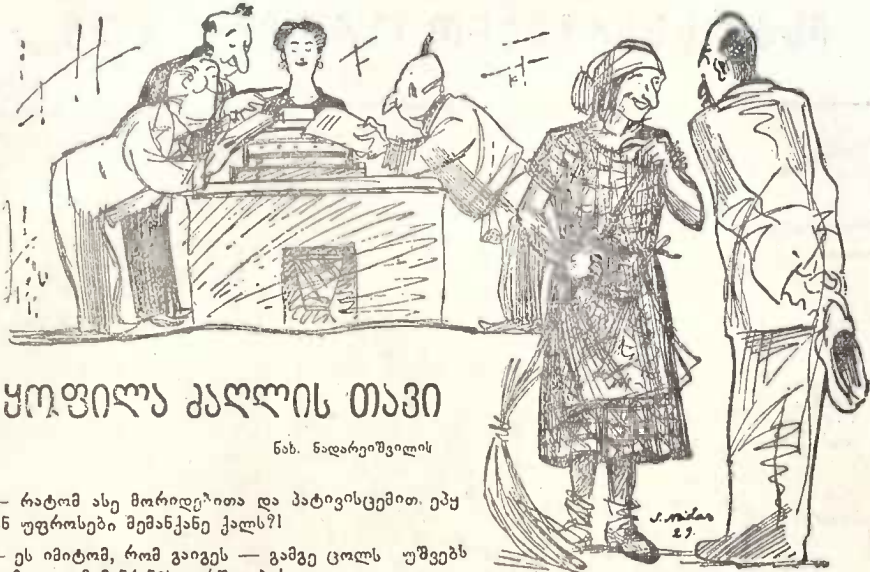 ყოფილა ძაღლის თავი
ნახ. ნადარეიშვილის
— რატომ ასე მორიდებითა და პატივისცემით ეპყ
ნ უფროსები მემანქანე ქალს?!
— ეს იმიტომ, რომ გაიგეს — გამგე ცოლს უშვებს